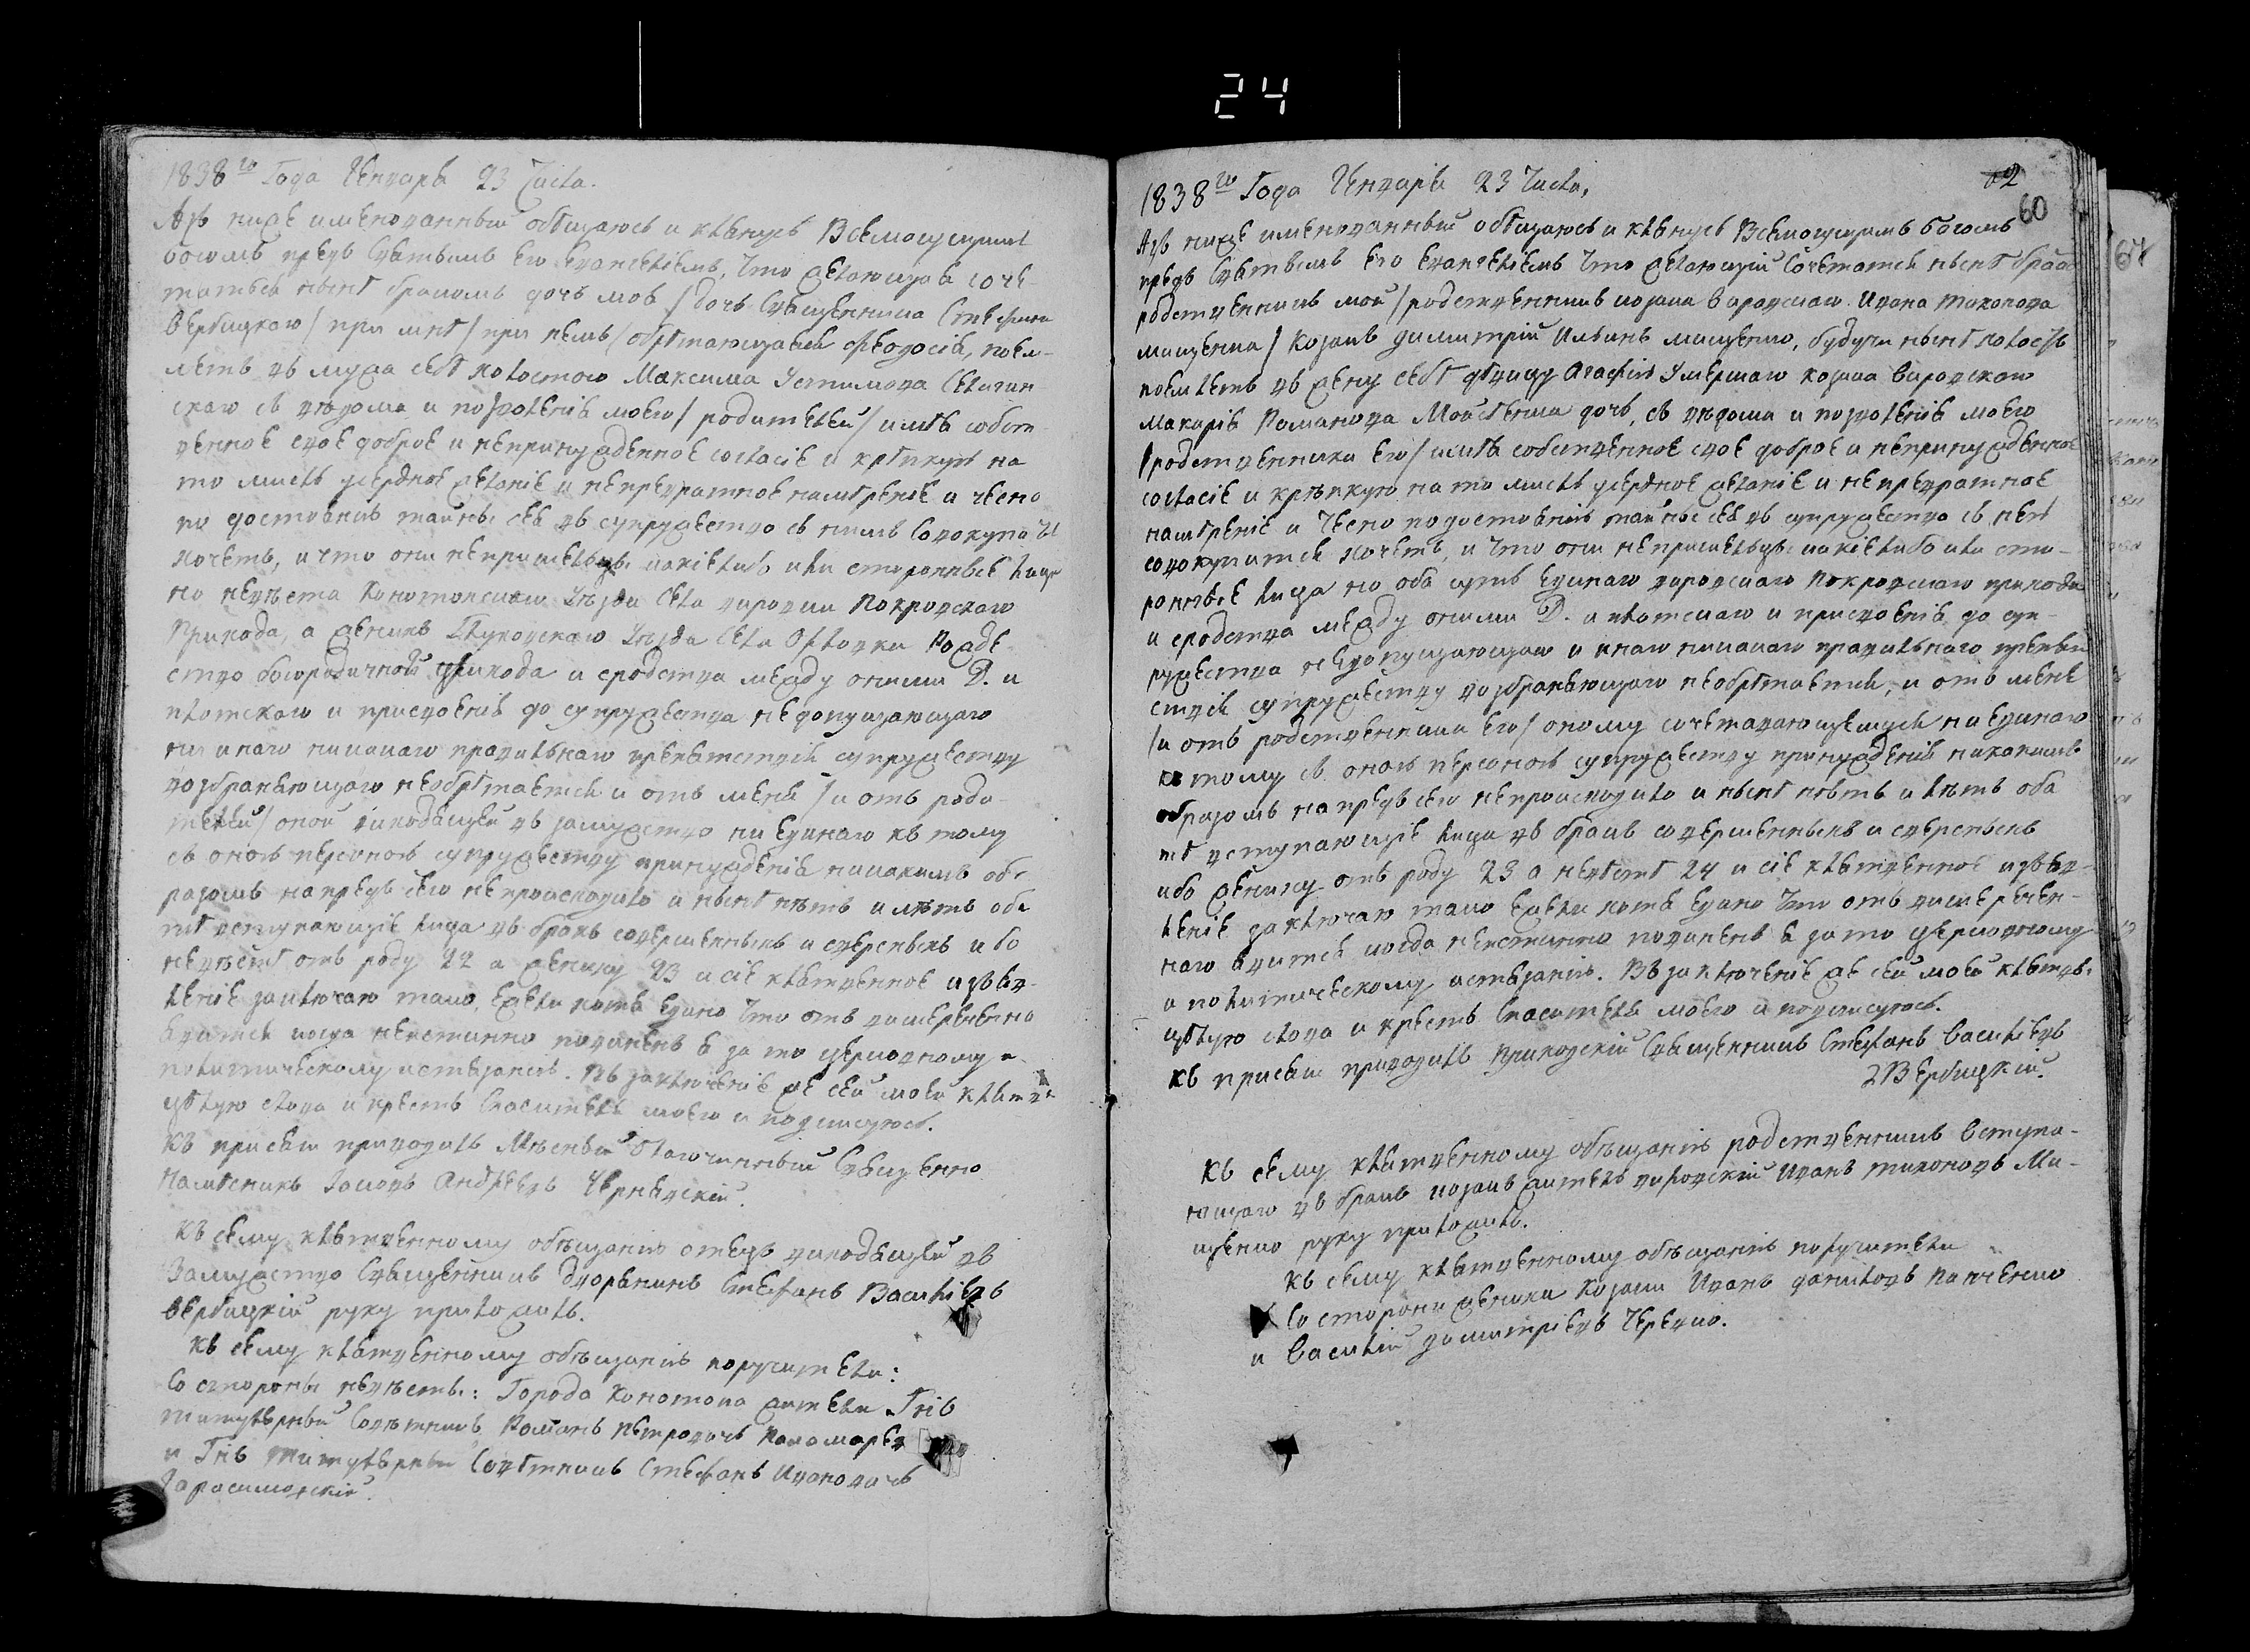 24
1838го Года Генваря 23 Числа.
Азъ ниже именованный обѣщаюсь и клянусь Всемогущимъ
богомъ предъ Святымъ Его Евангелiемъ, что желающая соче-
татся нынѣ бракомъ дочь моя / дочь Священника Стефана
Вербицкаго / при мнѣ / при немъ / обрѣтающаяся Феодосiя, поем-
летъ въ мужа себѣ холостого Максима Устимова
скаго съ вѣдома и позволенiя моего / родителей / имѣя собст-
венное свое доброе и непринужденное согласiе и крѣпкую на
то мысль усердное желанiе и непревратное намѣренiе и чесно
по достоянiю тайны сея въ супружество съ нимъ Совокупитися
хочетъ, и что они не пришельцы какiелибо или сторонные лица
но невѣста Конотопскаго Уѣзда Села вировки Покровскаго
Прихода, а женихъ Глуховскаго Уѣзда Села Орловки Рожде-
ство богородичной прихода и сродства между оними Д. и
плотскаго и присвоенiя до супружества недопущающаго
ни инаго никакаго правильнаго препятствiя супружеству
возбраняющаго необрѣтается и отъ мене / и отъ роди-
телей / оной виходящей въ замужство ни единаго къ тому
съ оною персоною супружеству принужденiя никакимъ об-
разомъ напредъ сего непроисходило и нынѣ нѣтъ и лѣтъ оба
тѣ вступающiе лица въ бракъ совершенныхъ и сверсныхъ ибо
невѣстѣ отъ роду 22 а жениху 23 и сiе клятвенное изъяв-
ленiе заключаю тако, ежели хотя едино что отъ вишереченно
явится когда неистинно повиненъ я за то церковному и
политическому истязанiю. Въ заключенiе же сей моей клятвы
цѣлую слова и крестъ Спасителя моего и подписуюсь.
Къ присязи приводилъ Мѣсный благочинный Священно
намѣсникъ Iаковъ Андреевъ Чернявскiй.
Къ сему клятвенному обѣщанiю отецъ виходящей въ
Замужство Священникъ Дворянинъ Стефанъ Васильевъ
Вербицкiй руку приложилъ.
Къ сему клятвенному обѣщанiю поручители:
Со стороны невѣсты: Города Конотопа жители Гнъ
титулярный Совѣтникъ Романъ Петровичъ Пономарев
и Гнъ титулярный Совѣтникъ Стефанъ Ивановичъ
Гарасимовскiй.
62
60
1838го Года Генваря 23 Числа,
Азъ ниже именованный обѣщаюсь и клянусь Всемогущимъ богомъ
предъ Святымъ Его Евангелiемъ что желающiй Сочетатся нынѣ брако
родственникъ мой / родственникъ козака вировскаго Ивана тихонова
мищенка / Козакъ димитрiй Ильинъ мищенко, будучи нынѣ холостъ
поемлетъ въ жену себѣ дѣвицу Агафiю Умершаго козака вировскаго
Макарiя Романова дочь, съ вѣдома и позволенiя моего
/ родственника его / имѣя собственное свое доброе и непринужденное
согласiе и крѣпкую на то мысль усердное желанiе и непревратное
намѣренiе и чесно по достоянiю тайны сея въ супружество съ нею
совокупитися хочетъ, и что они не пришельцы какiелибо или сто-
ронные лица но оба суть Единаго вировскаго Покровскаго прихода
и сродства между оними Д. и плотскаго и присвоенiя до суп-
ружества недопущающаго и инаго никакаго правильнаго препят-
ствiя супружеству возбраняющаго необрѣтается, и отъ мене
/ и отъ родственника его / оному сочетавающемуся ни единаго
къ тому съ оною персоною супружеству принужденiя никакимъ
образомъ напредъ сего непроисходило и нынѣ нѣтъ и лѣтъ оба
тѣ вступающiе лица въ бракъ совершенныхъ и сверсныхъ
ибо жениху отъ роду 23 а невѣстѣ 24 и сiе клятвенное изъяв-
ленiе заключаю тако ежели хотя едино что отъ вишеречен-
наго явится когда неистинно повиненъ я за то церковному
и политическому истязанiю. Въ заключенiе же сей моей клятвы
цѣлую слова и крестъ Спасителя моего и подписуюсь.
Къ присязи приводилъ Приходскiй Священникъ Стефанъ Васильевъ
Вербицкiй.
Къ сему клятвенному обѣщанiю родственникъ Вступа-
ющаго въ бракъ козакъ житель вировскiй Иванъ тихоновъ Ми-
щенко руку приложилъ.
Къ сему клятвенному обѣщанiю поручители
Со стороны жениха Козаки Иванъ даниловъ Панченко
и Василiй димитрiевъ Черевко.